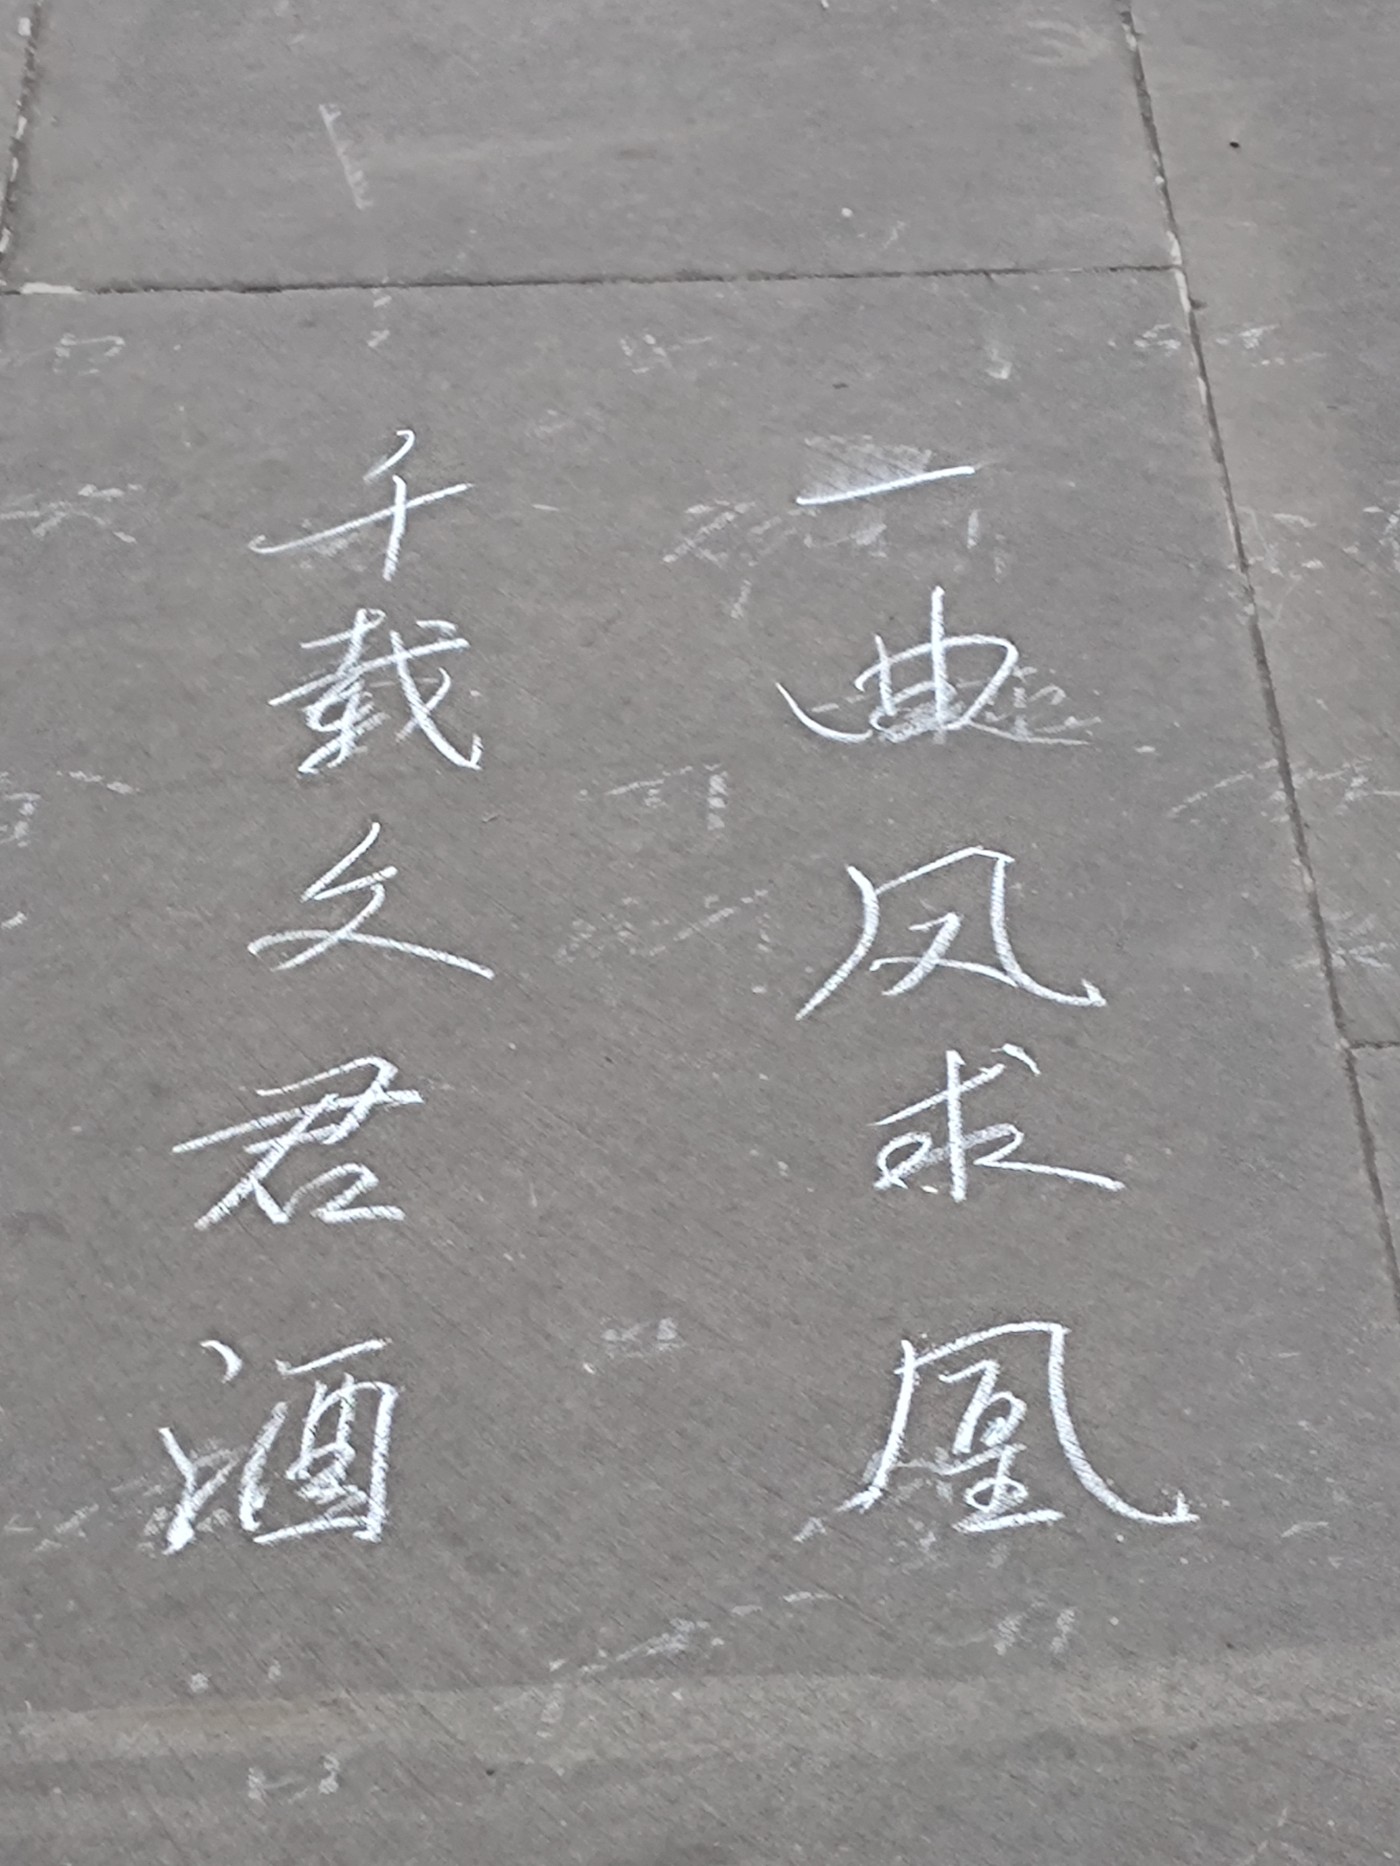 一曲凤求凰
千载文君酒